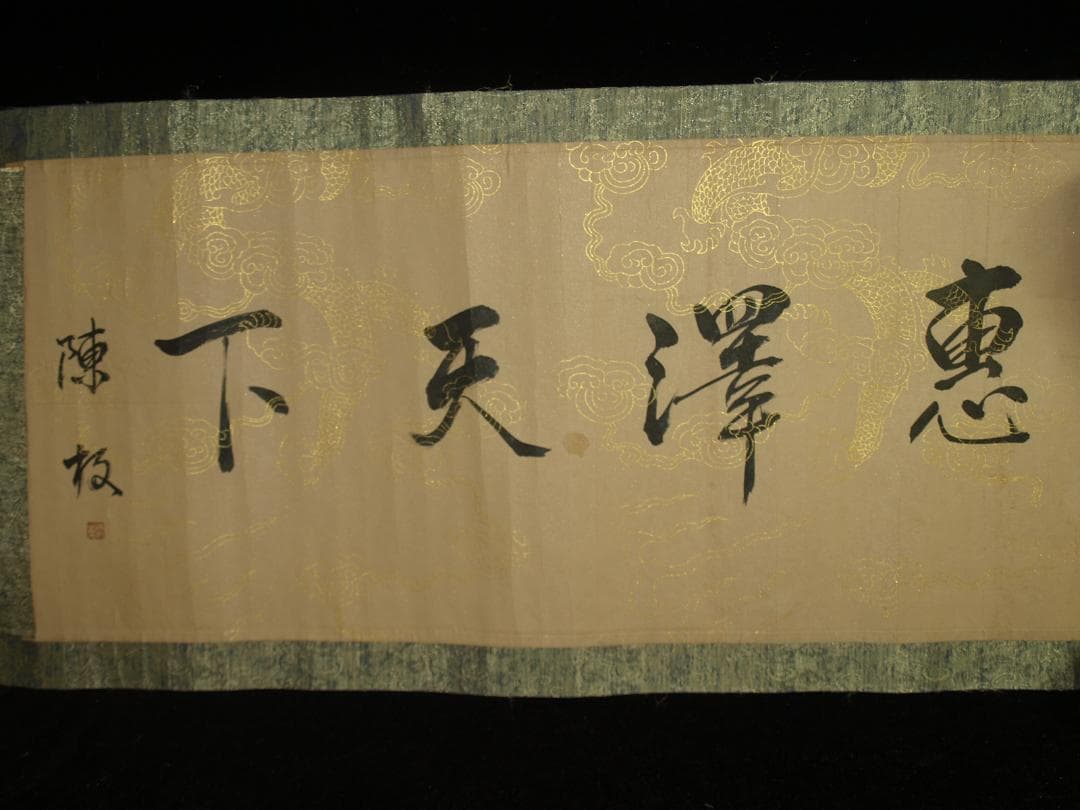 惠澤天下
陳枚